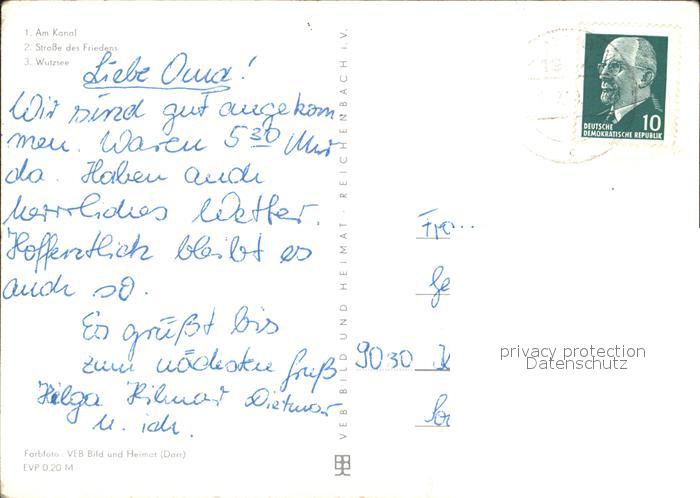 1. Am Kanal
2. Straße des Friedens
3. Wutzsee
Liebe Oma!
Wir sind gut angekom
men. Waren 5 30 Uhr
da. Haben auch
herrliches Wetter.
Hoffentlich bleibt es
auch so.
Es grüßt bis
zum nächsten Gruß
Helga Hilmar Dietmar
u. ich.
Farbfoto: VEB Bild und Heimat (Darr)
EVP 0,20 M
VEB BILD UND HEIMAT · REICHENBACH i. V.
DEUTSCHE
DEMOKRATISCHE REPUBLIK
10
9030
privacy protection
Datenschutz